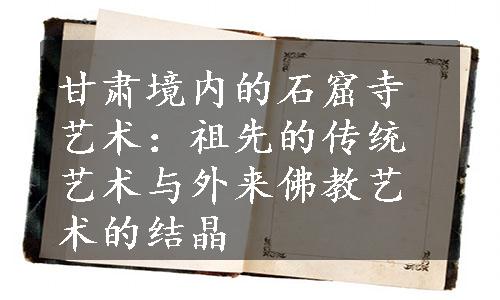 甘肃境内的石窟寺
艺术：祖先的传统
艺术与外来佛教艺
术的结晶